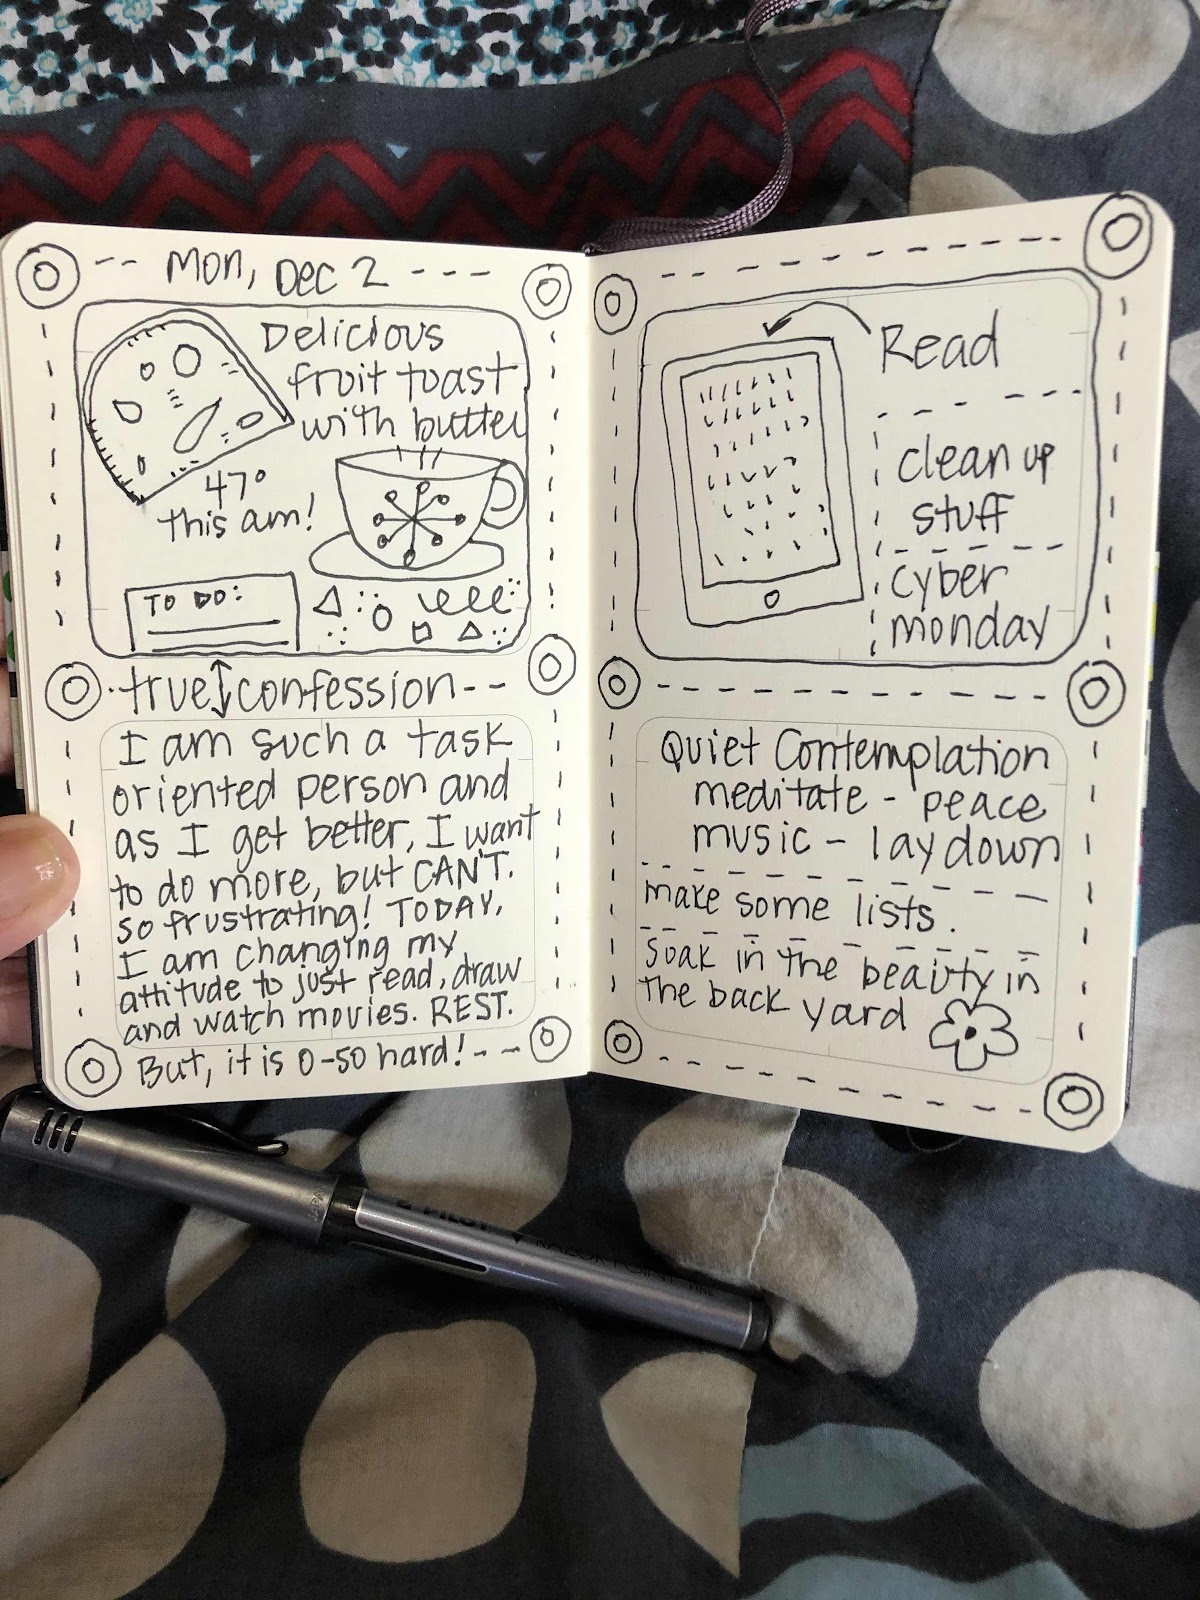 Mon, Dec 2
Delicious
fruit toast
with butter
47°
this am!
TO DO:
true confession
I am such a task
oriented person and
as I get better, I want
to do more, but CAN'T.
so frustrating! TODAY,
I am changing my
attitude to just read, draw
and watch movies. REST.
But, it is 0-50 hard!
Read
clean up
stuff
cyber
monday
Quiet Contemplation
meditate - peace
music - lay down
make some lists.
soak in the beauty in
the back yard
JAPAN
PILOT